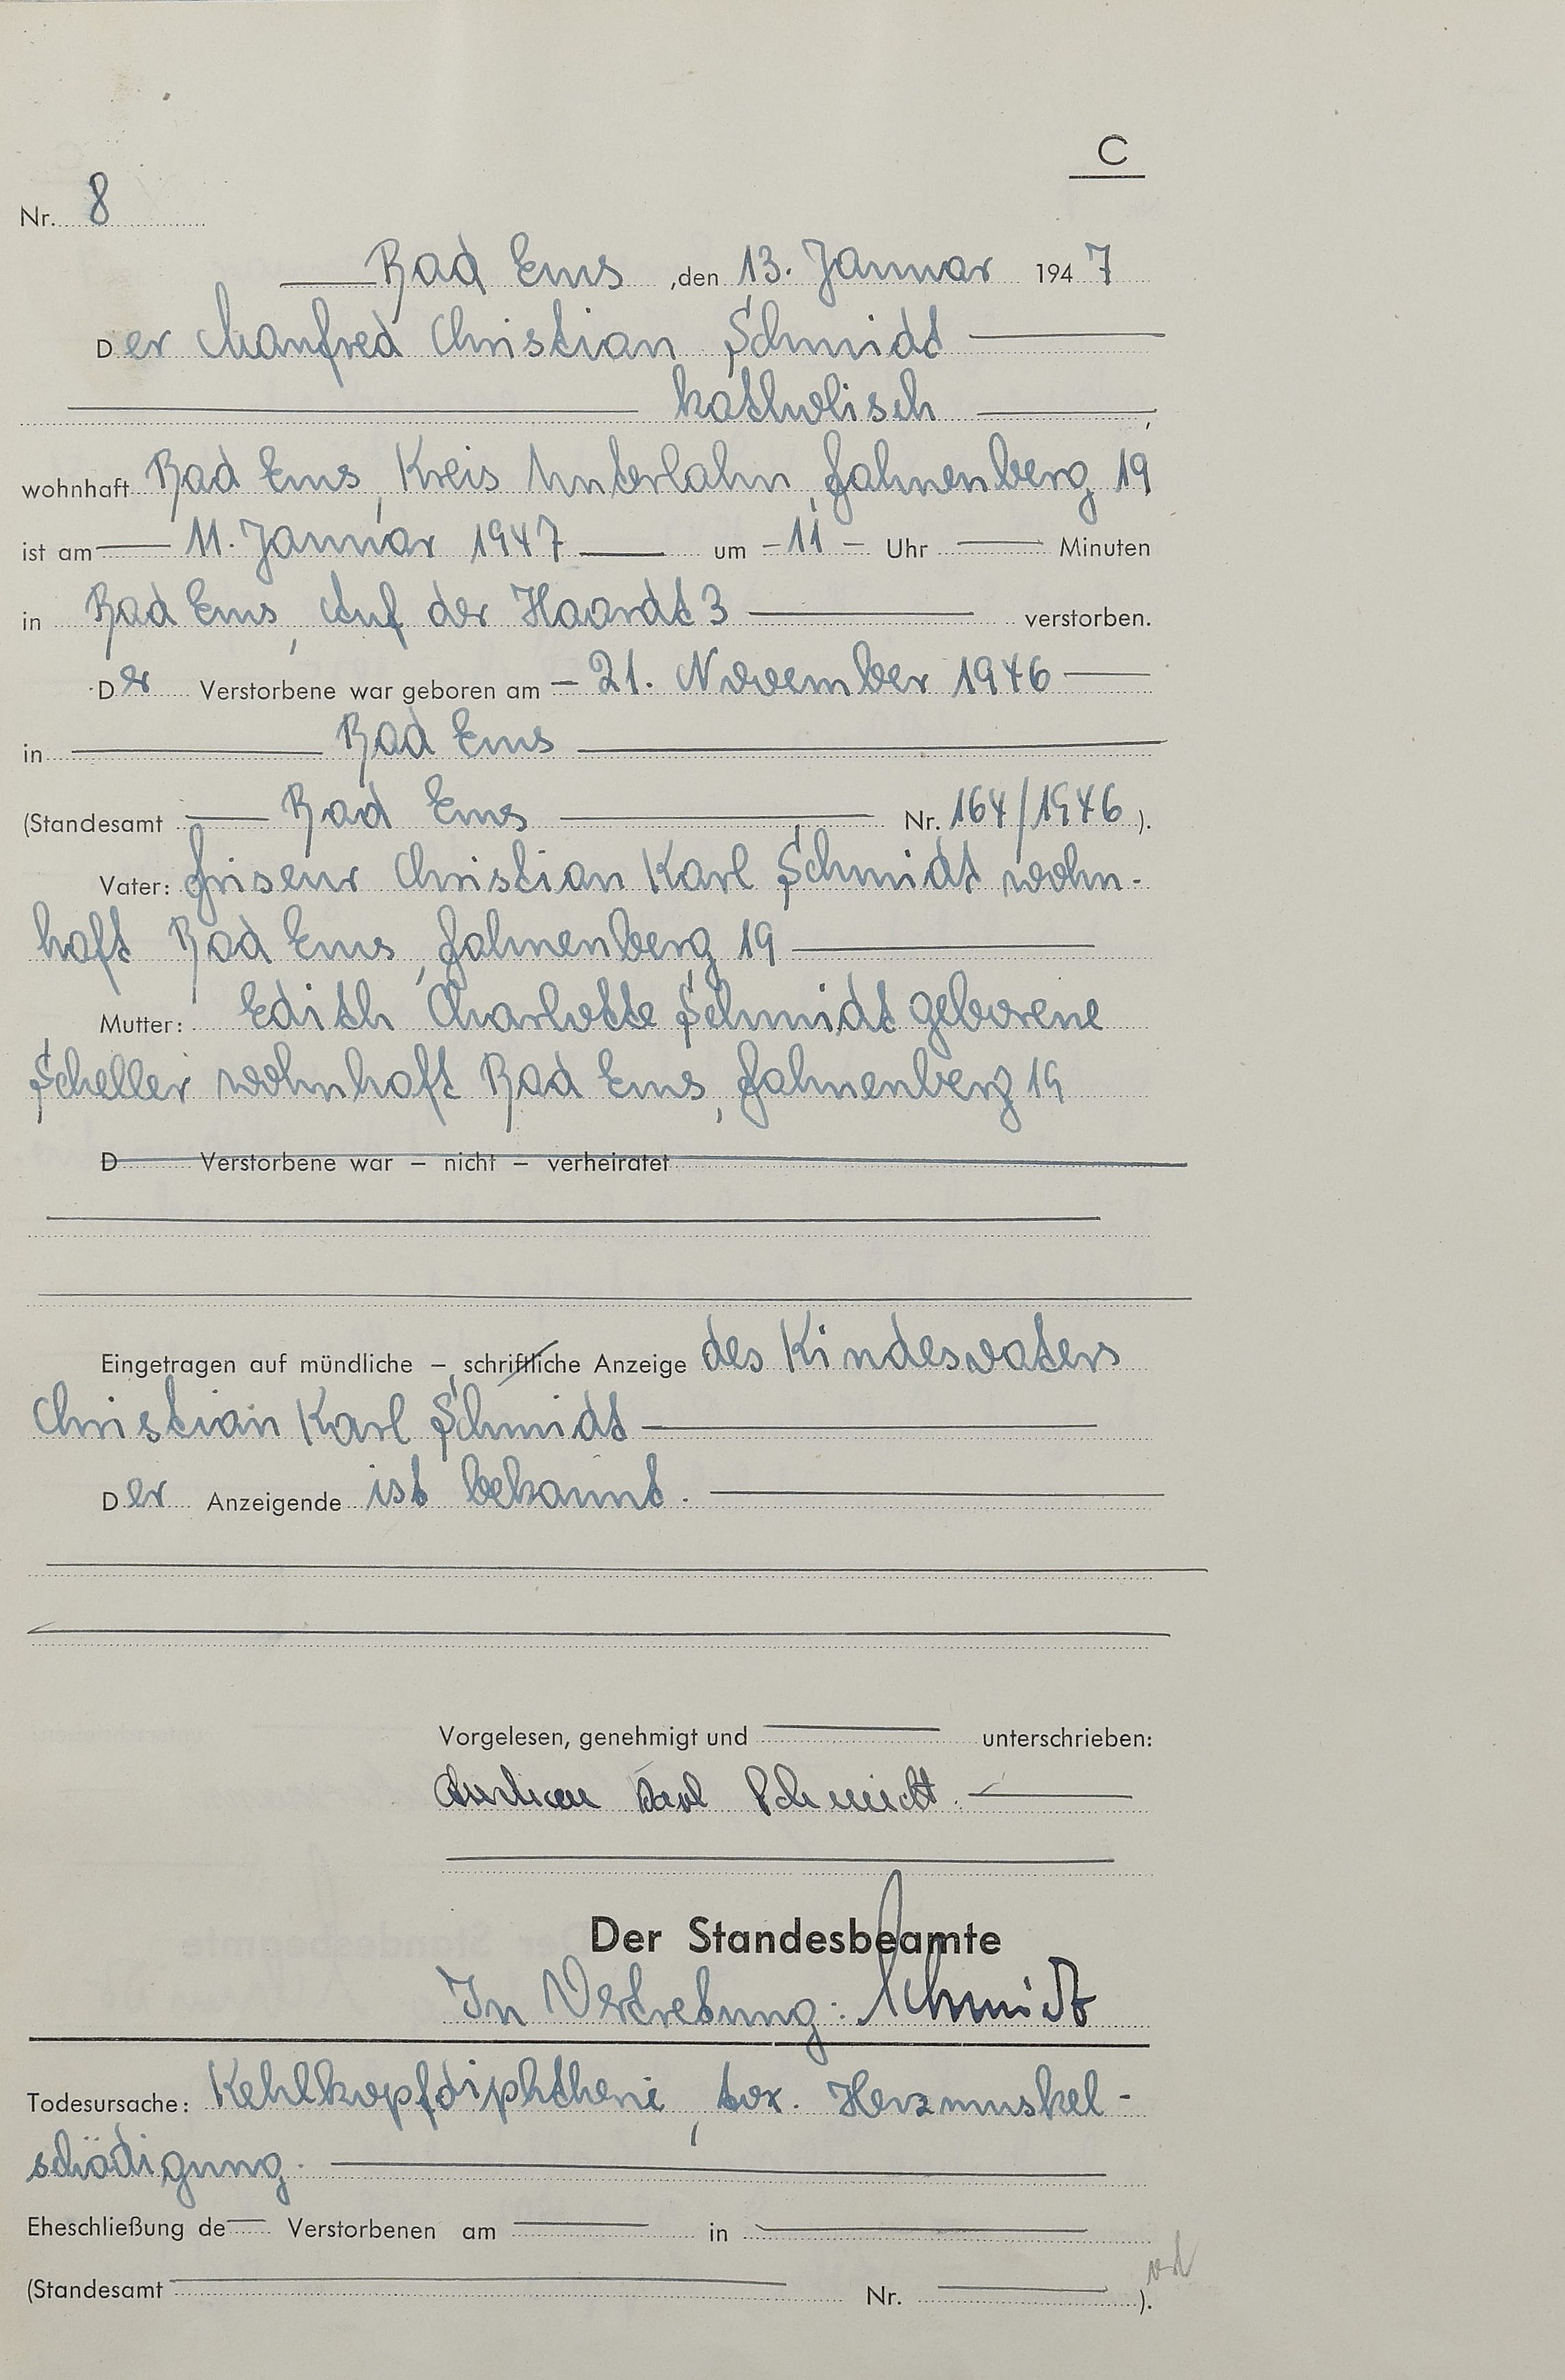 C
Nr. 8
Bad Ems, den 13. Januar 1947
Der Manfred Christian Schmidt
katholisch,
wohnhaft Bad Ems, Kreis Unterlahn, Fahnenberg 19
ist am 11. Januar 1947 um - 11 - Uhr Minuten
in Bad Ems, Auf der Haardt 3 verstorben.
Der Verstorbene war geboren am - 21. November 1946
in Bad Ems
(Standesamt Bad Ems Nr. 164/1946).
Vater: Friseur Christian Karl Schmidt wohn-
haft Bad Ems, Fahnenberg 19
Mutter: Edith Charlotte Schmidt geborene
Scheller wohnhaft Bad Ems, Fahnenberg 19
D Verstorbene war – nicht – verheiratet
Eingetragen auf mündliche – schriftliche Anzeige des Kindesvaters
Christian Karl Schmidt
Der Anzeigende ist bekannt.
Vorgelesen, genehmigt und unterschrieben:
Christian Karl Schmidt.
Der Standesbeamte
In Vertretung: Schmidt
Todesursache: Kehlkopfdiphtherie, tox. Herzmuskel-
schädigung.
Eheschließung de Verstorbenen am in
(Standesamt Nr. ).